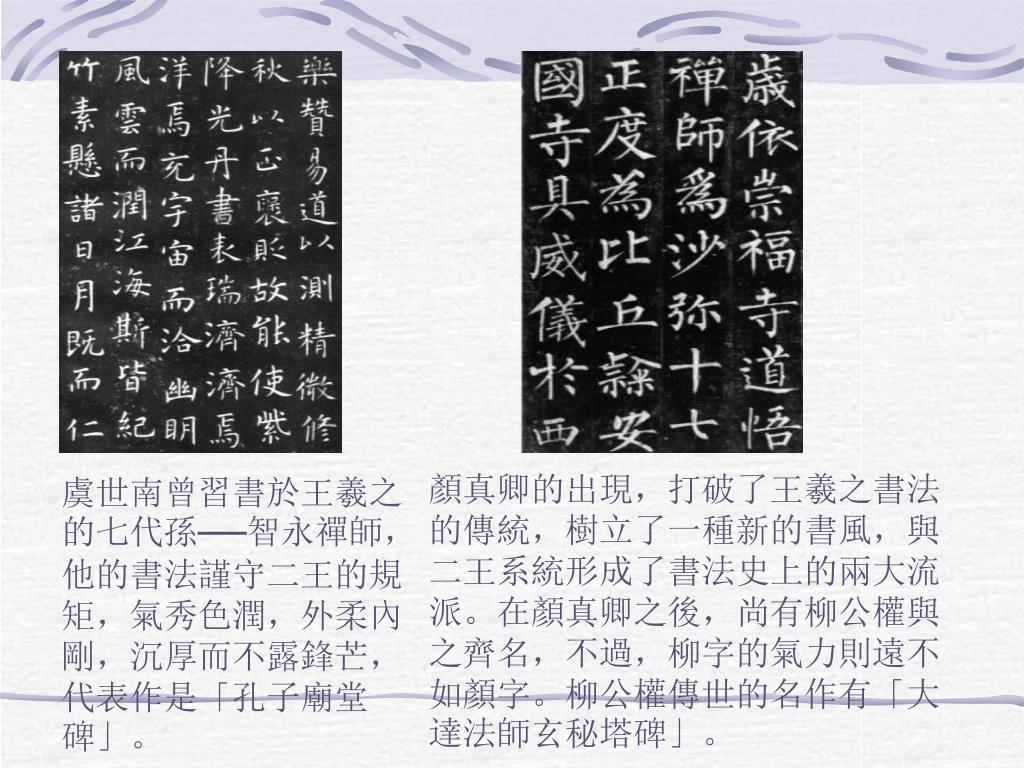 樂贊易道以測精微修
秋以正褒貶故能使紫
降光丹書表瑞濟濟焉
洋焉充宇宙而洽幽明
風雲而潤江海斯皆紀
竹素懸諸日月既而仁
歲依崇福寺道悟
禪師爲沙弥十七
正度為比丘隸安
國寺具威儀於西
虞世南曾習書於王羲之
的七代孫──智永禪師，
他的書法謹守二王的規
矩，氣秀色潤，外柔內
剛，沉厚而不露鋒芒，
代表作是「孔子廟堂
碑」。
顏真卿的出現，打破了王羲之書法
的傳統，樹立了一種新的書風，與
二王系統形成了書法史上的兩大流
派。在顏真卿之後，尚有柳公權與
之齊名，不過，柳字的氣力則遠不
如顏字。柳公權傳世的名作有「大
達法師玄秘塔碑」。